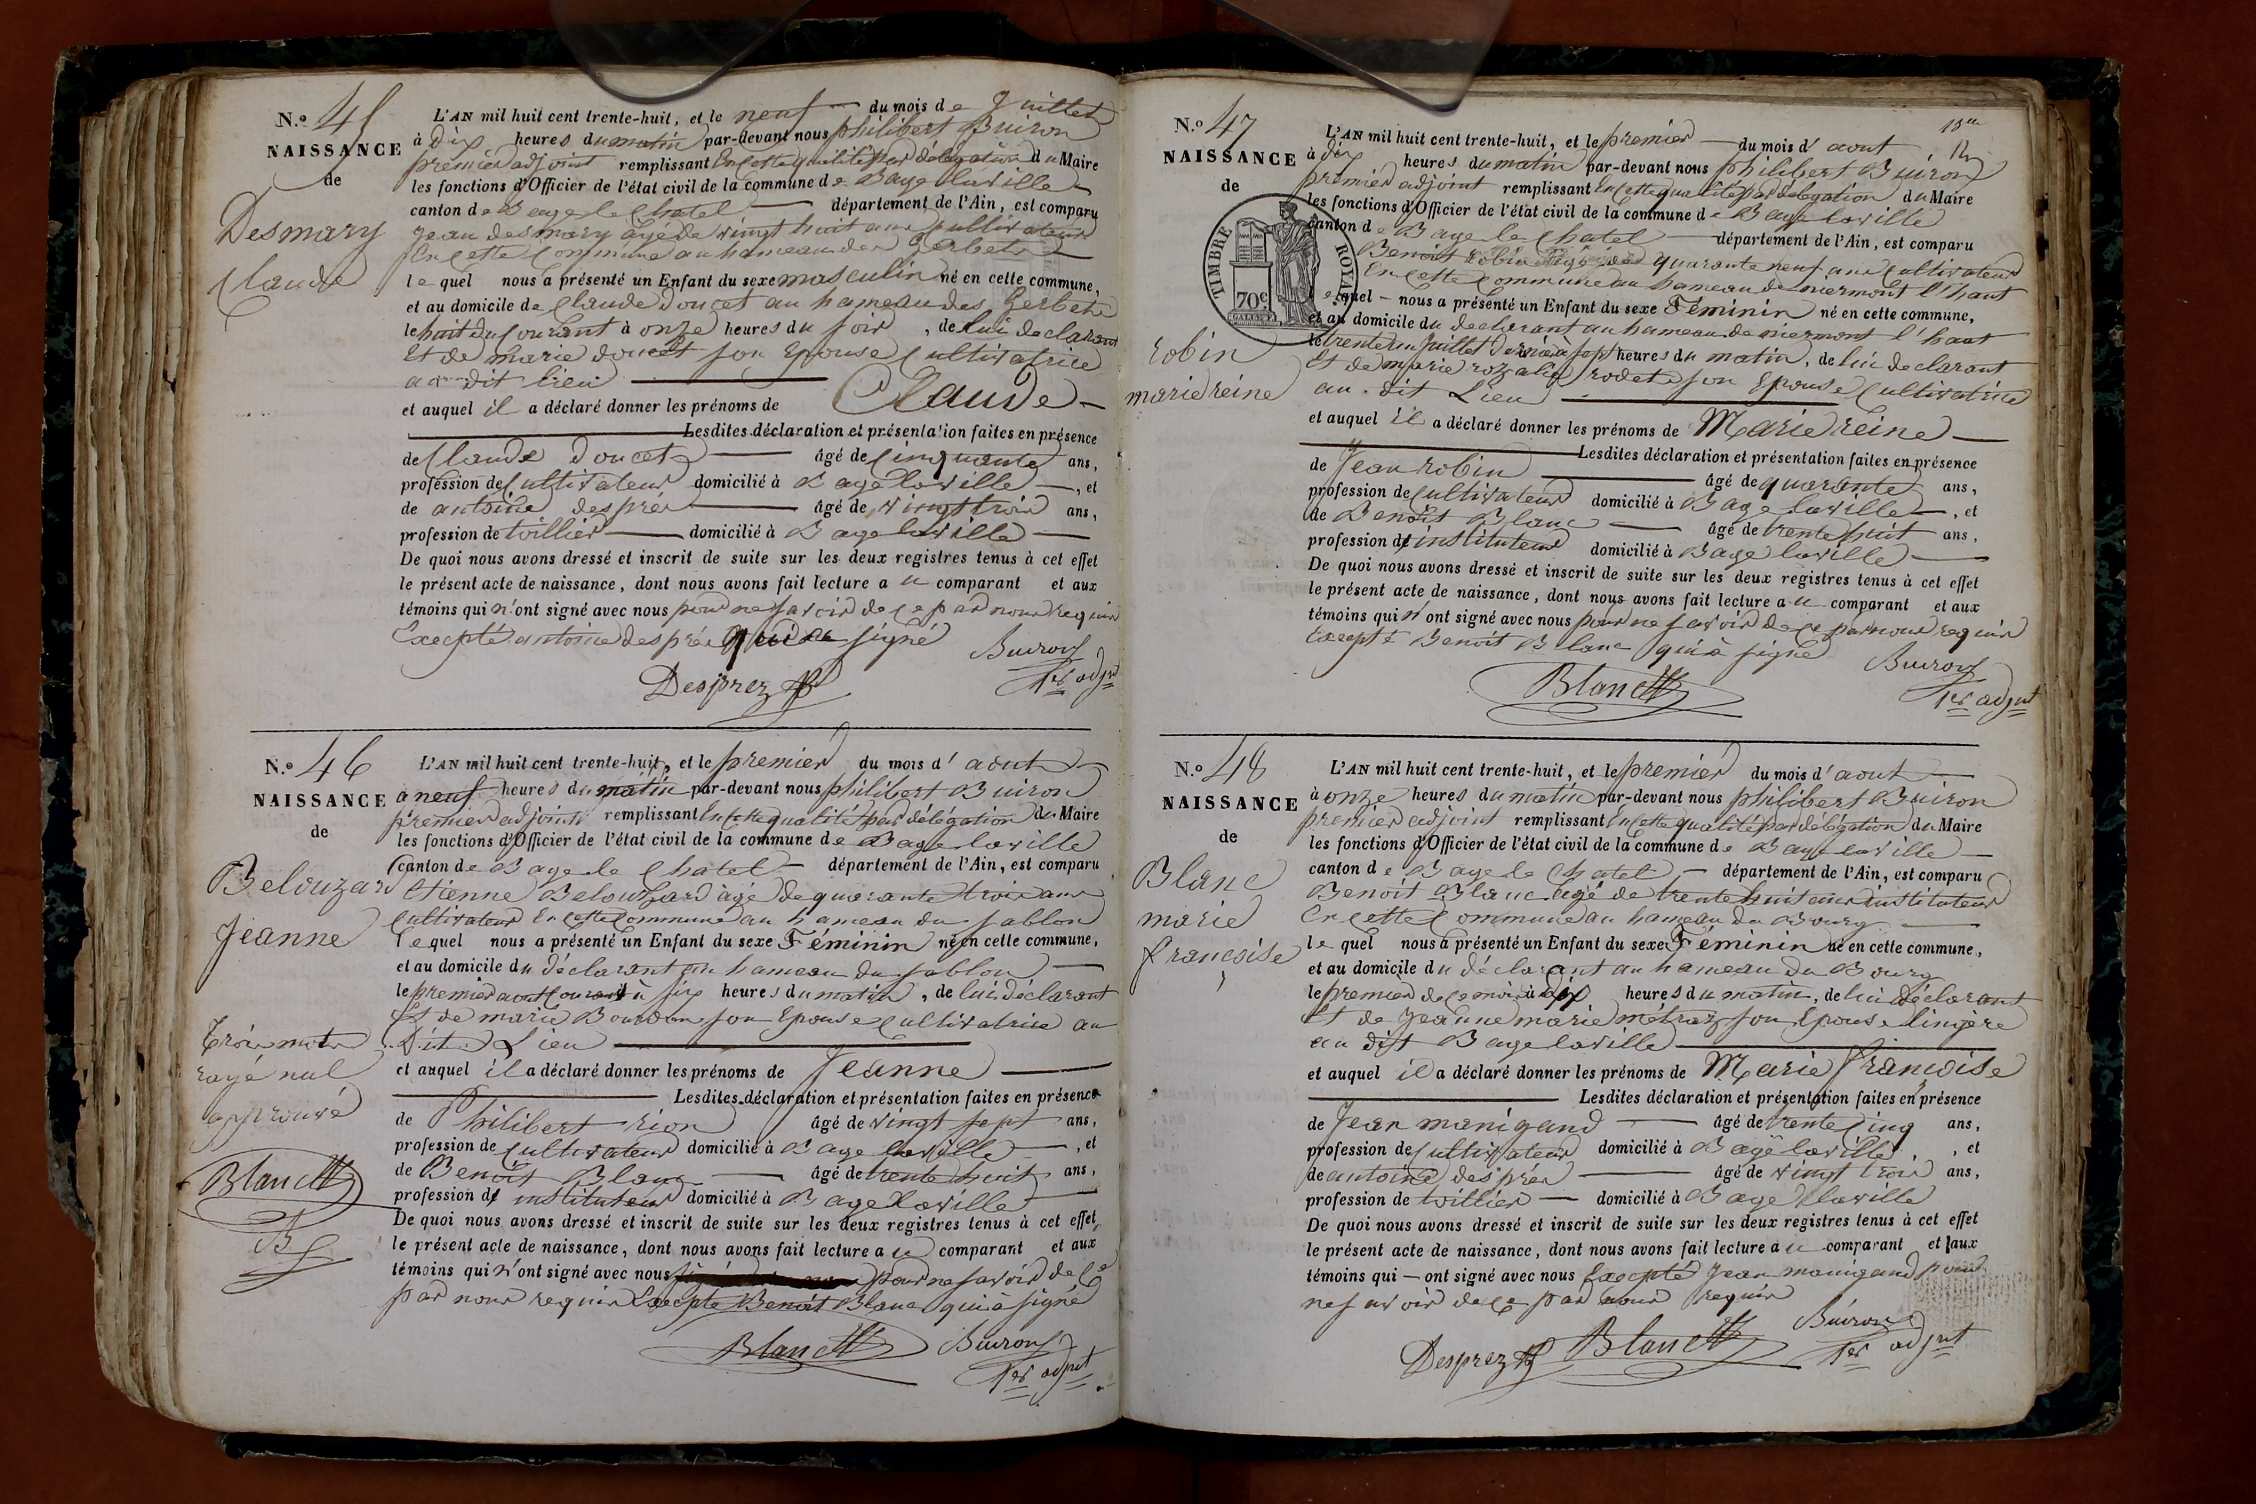 N.º 45
NAISSANCE
de
Desmary
Claude
L'AN mil huit cent trente-huit, et le neuf du mois de Juillet
à Dix heures du matin par-devant nous philibert Buiron
premier adjoint remplissant en cette qualité par délégation du Maire
les fonctions d'Officier de l'état civil de la commune de Bage laville
canton de Bage le Chatel département de l'Ain, est comparu
Jean desmary agé de vingt huit ans cultivateur
en cette commune au hameau des Gerbets
lequel nous a présenté un Enfant du sexe masculin né en cette commune,
et au domicile de Claude doucet au hameau des Gerbets
le huit du courant à onze heures du soir, de lui declarant
et de marie doucet son Epouse cultivatrice
au dit lieu
et auquel il a déclaré donner les prénoms de Claude
Lesdites déclaration et présentation faites en présence
de Claude doucet âgé de cinquante ans,
profession de cultivateur domicilié à Bage laville, et
de antoine després âgé de vingt trois ans,
profession de toillier domicilié à Bage laville
De quoi nous avons dressé et inscrit de suite sur les deux registres tenus à cet effet
le présent acte de naissance, dont nous avons fait lecture au comparant et aux
témoins qui n'ont signé avec nous pour ne savoir de ce par nous requis
Excepté antoine després qui a signé
Desprez
Buiron
1er adjnt
N.º 46
NAISSANCE
de
Belouzard
Jeanne
Trois mots
rayé nul
approuvé
Blanc
B
L'AN mil huit cent trente-huit, et le premier du mois d'aout
à neuf heures du matin par-devant nous philibert Buiron
premier adjoint remplissant en cette qualité par délégation du Maire
les fonctions d'Officier de l'état civil de la commune de Bage laville
canton de Bage le Chatel département de l'Ain, est comparu
Etienne Belouzard agé de quarante trois ans
cultivateur en cette commune au hameau du sablon
lequel nous a présenté un Enfant du sexe Féminin né en cette commune,
et au domicile du déclarant au hameau du sablon
le premier aout courant à six heures du matin, de lui déclarant
et de marie Bourdon son Epouse cultivatrice au
Dit Lieu
et auquel il a déclaré donner les prénoms de Jeanne
Lesdites déclaration et présentation faites en présence
de Philibert rion âgé de vingt sept ans,
profession de cultivateur domicilié à Bage laville, et
de Benoit Blanc âgé de trente huit ans,
profession d'instituteur domicilié à Bage laville
De quoi nous avons dressé et inscrit de suite sur les deux registres tenus à cet effet,
le présent acte de naissance, dont nous avons fait lecture au comparant et aux
témoins qui n'ont signé avec nous pour ne savoir de ce
par nous requis Excepté Benoit Blanc qui à signé
Blanc
Buiron
1er adjnt
N.º 47
NAISSANCE
de
TIMBRE ROYAL
70c
robin
marie reine
L'AN mil huit cent trente-huit, et le premier du mois d'aout
à dix heures du matin par-devant nous philibert Buiron
premier adjoint remplissant en cette qualité par délégation du Maire
les fonctions d'Officier de l'état civil de la commune de Bage laville
canton de Bage le Chatel département de l'Ain, est comparu
Benoit robin agé de quarante neuf ans cultivateur
en cette commune au hameau de niermont l'haut
lequel nous a présenté un Enfant du sexe Féminin né en cette commune,
et au domicile du declarant au hameau de niermont l'haut
le trente un Juillet dernier à sept heures du matin, de lui declarant
et de marie rozalie rodet son Epouse cultivatrice
au dit Lieu
et auquel il a déclaré donner les prénoms de Marie reine
Lesdites déclaration et présentation faites en présence
de Jean robin âgé de quarante ans,
profession de cultivateur domicilié à Bage laville, et
de Benoit Blanc âgé de trente huit ans,
profession d'instituteur domicilié à Bage laville
De quoi nous avons dressé et inscrit de suite sur les deux registres tenus à cet effet
le présent acte de naissance, dont nous avons fait lecture au comparant et aux
témoins qui n'ont signé avec nous pour ne savoir de ce par nous requis
Excepté Benoit Blanc qui à signé
Blanc
Buiron
1er adjnt
N.º 48
NAISSANCE
de
Blanc
marie
françoise
L'AN mil huit cent trente-huit, et le premier du mois d'aout
à onze heures du matin par-devant nous philibert Buiron
premier adjoint remplissant en cette qualité par délégation du Maire
les fonctions d'Officier de l'état civil de la commune de Bage laville
canton de Bage le Chatel département de l'Ain, est comparu
Benoit Blanc agé de trente huit ans instituteur
en cette commune au hameau du Bourg
lequel nous a présenté un Enfant du sexe Féminin né en cette commune,
et au domicile du déclarant au hameau du Bourg
le premier de ce mois à dix heures du matin, de lui déclarant
et de Jeanne marie métraz son Epouse lingère
au dit Bage laville
et auquel il a déclaré donner les prénoms de Marie françoise
Lesdites déclaration et présentation faites en présence
de Jean manigand âgé de trente cinq ans,
profession de cultivateur domicilié à Bage laville, et
de antoine després âgé de vingt trois ans,
profession de toillier domicilié à Bage laville
De quoi nous avons dressé et inscrit de suite sur les deux registres tenus à cet effet
le présent acte de naissance, dont nous avons fait lecture au comparant et aux
témoins qui ont signé avec nous Excepté Jean manigand pour
ne savoir de ce par nous requis
Desprez
Blanc
Buiron
1er adjnt